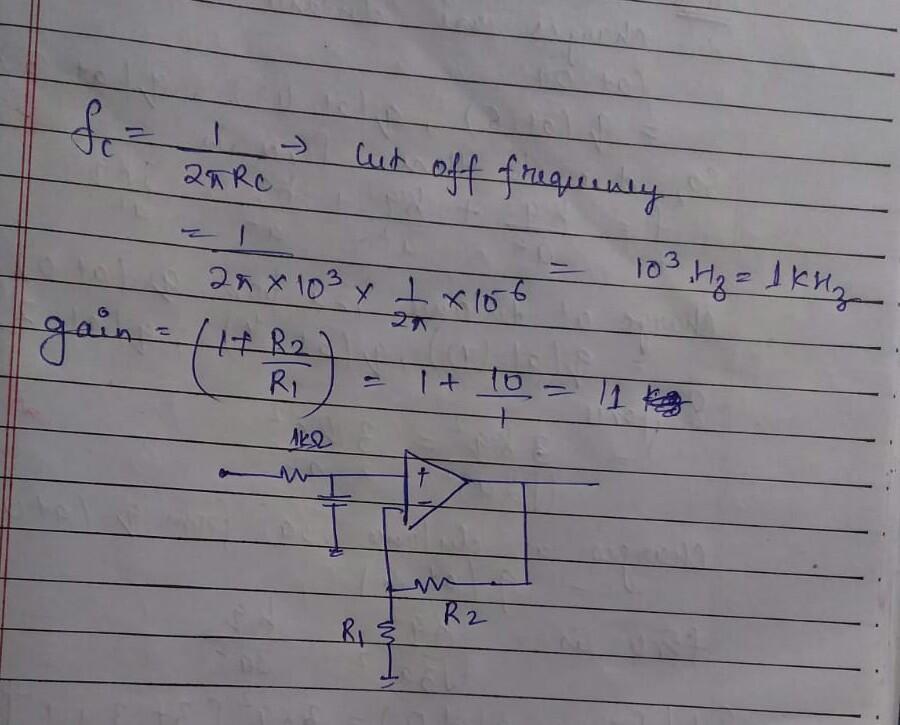 fc = 1 / 2πRC → Cut off frequency
= 1 / 2π × 10³ × 1/2π × 10⁻⁶ = 10³ Hz = 1 KHz
gain = (1 + R2/R1) = 1 + 10/1 = 11
1kΩ
+
−
R2
R1